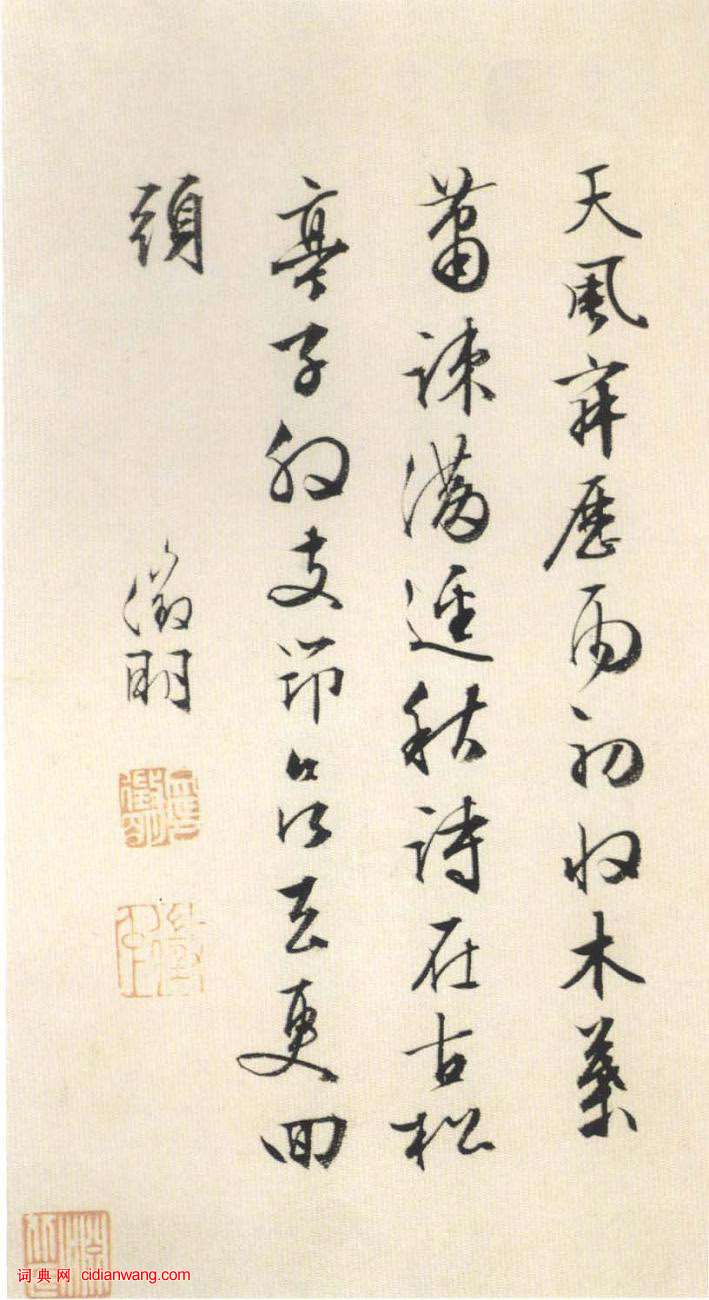 天風寂歷雨初收木葉
蕭踈滿逕秋詩在古松
亭子支筇欲去更回
頭
徵明
词典网 cidianwang.com